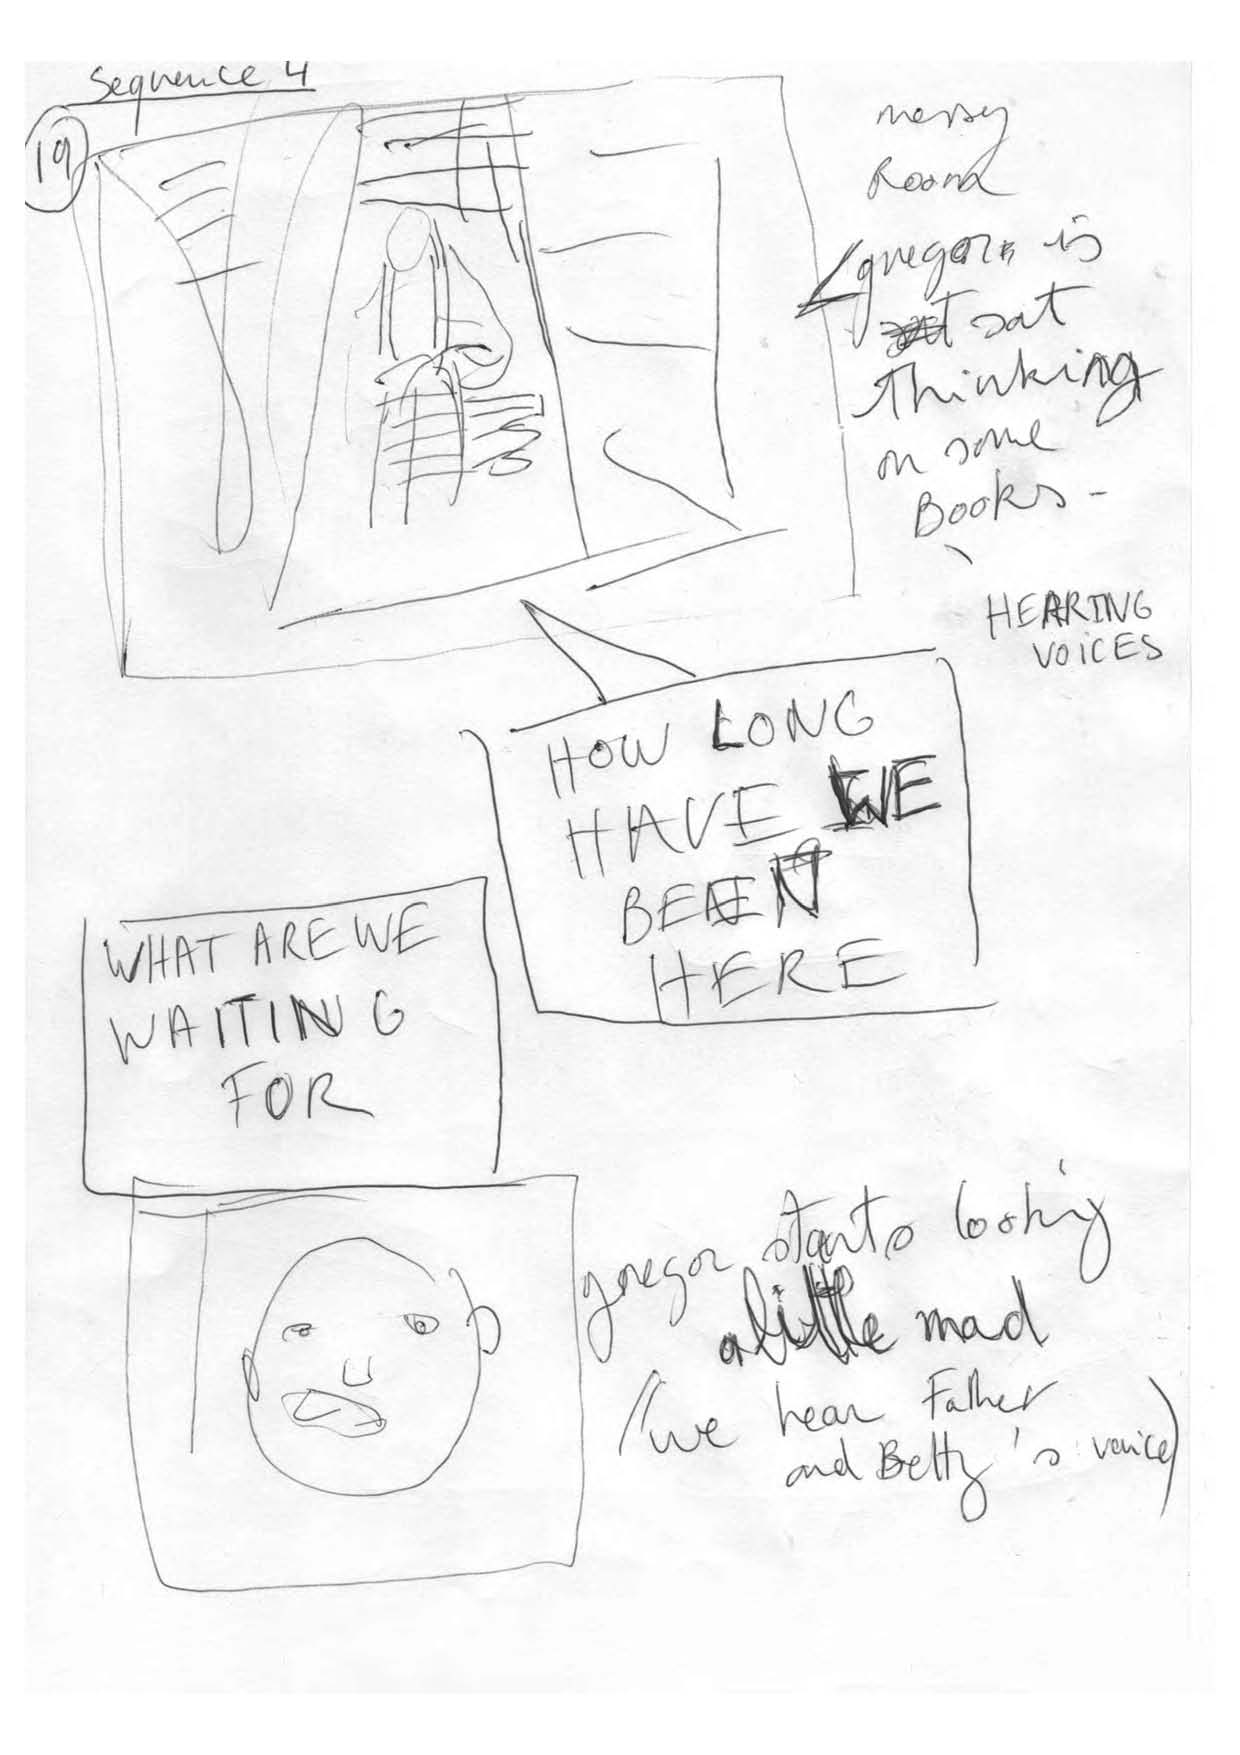 Sequence 4
19
messy
Room
gregor is
sat
thinking
on some
Books -
HEARING
VOICES
HOW LONG
HAVE WE
BEEN
HERE
WHAT ARE WE
WAITING
FOR
gregor starts looking
a little mad
(we hear Father
and Betty's voice)